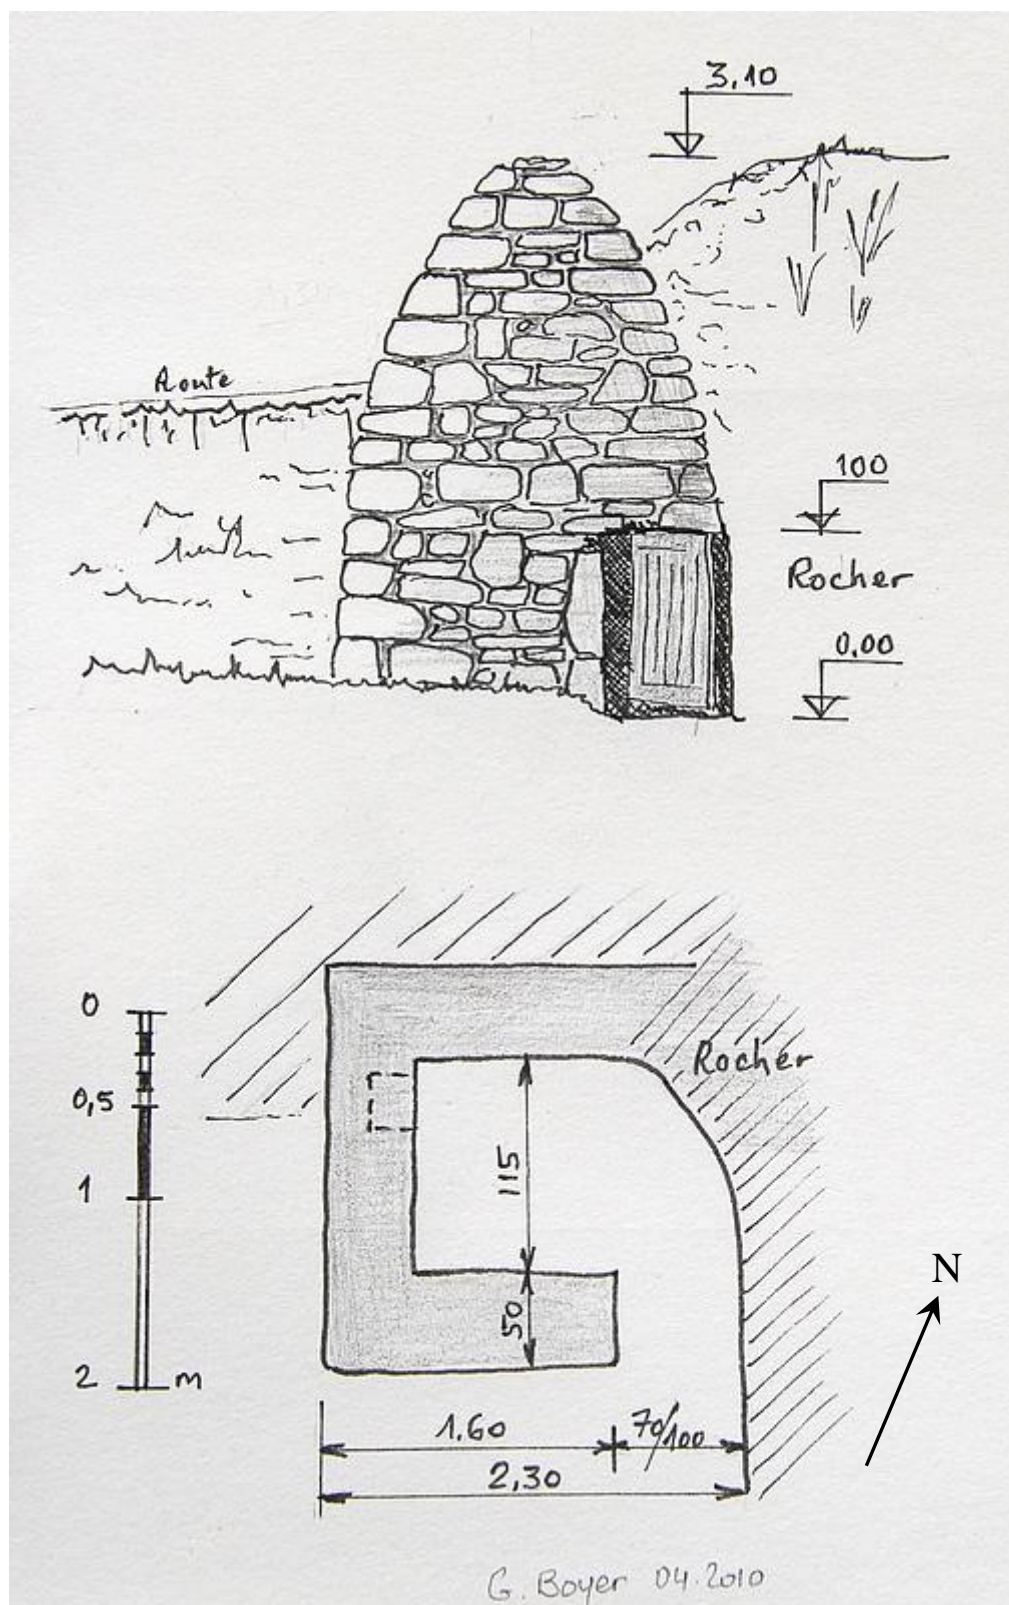 3,10
Route
100
Rocher
0,00
0
Rocher
0,5
115
1
N
50
2 m
1.60
70/100
2,30
G. Boyer 04.2010